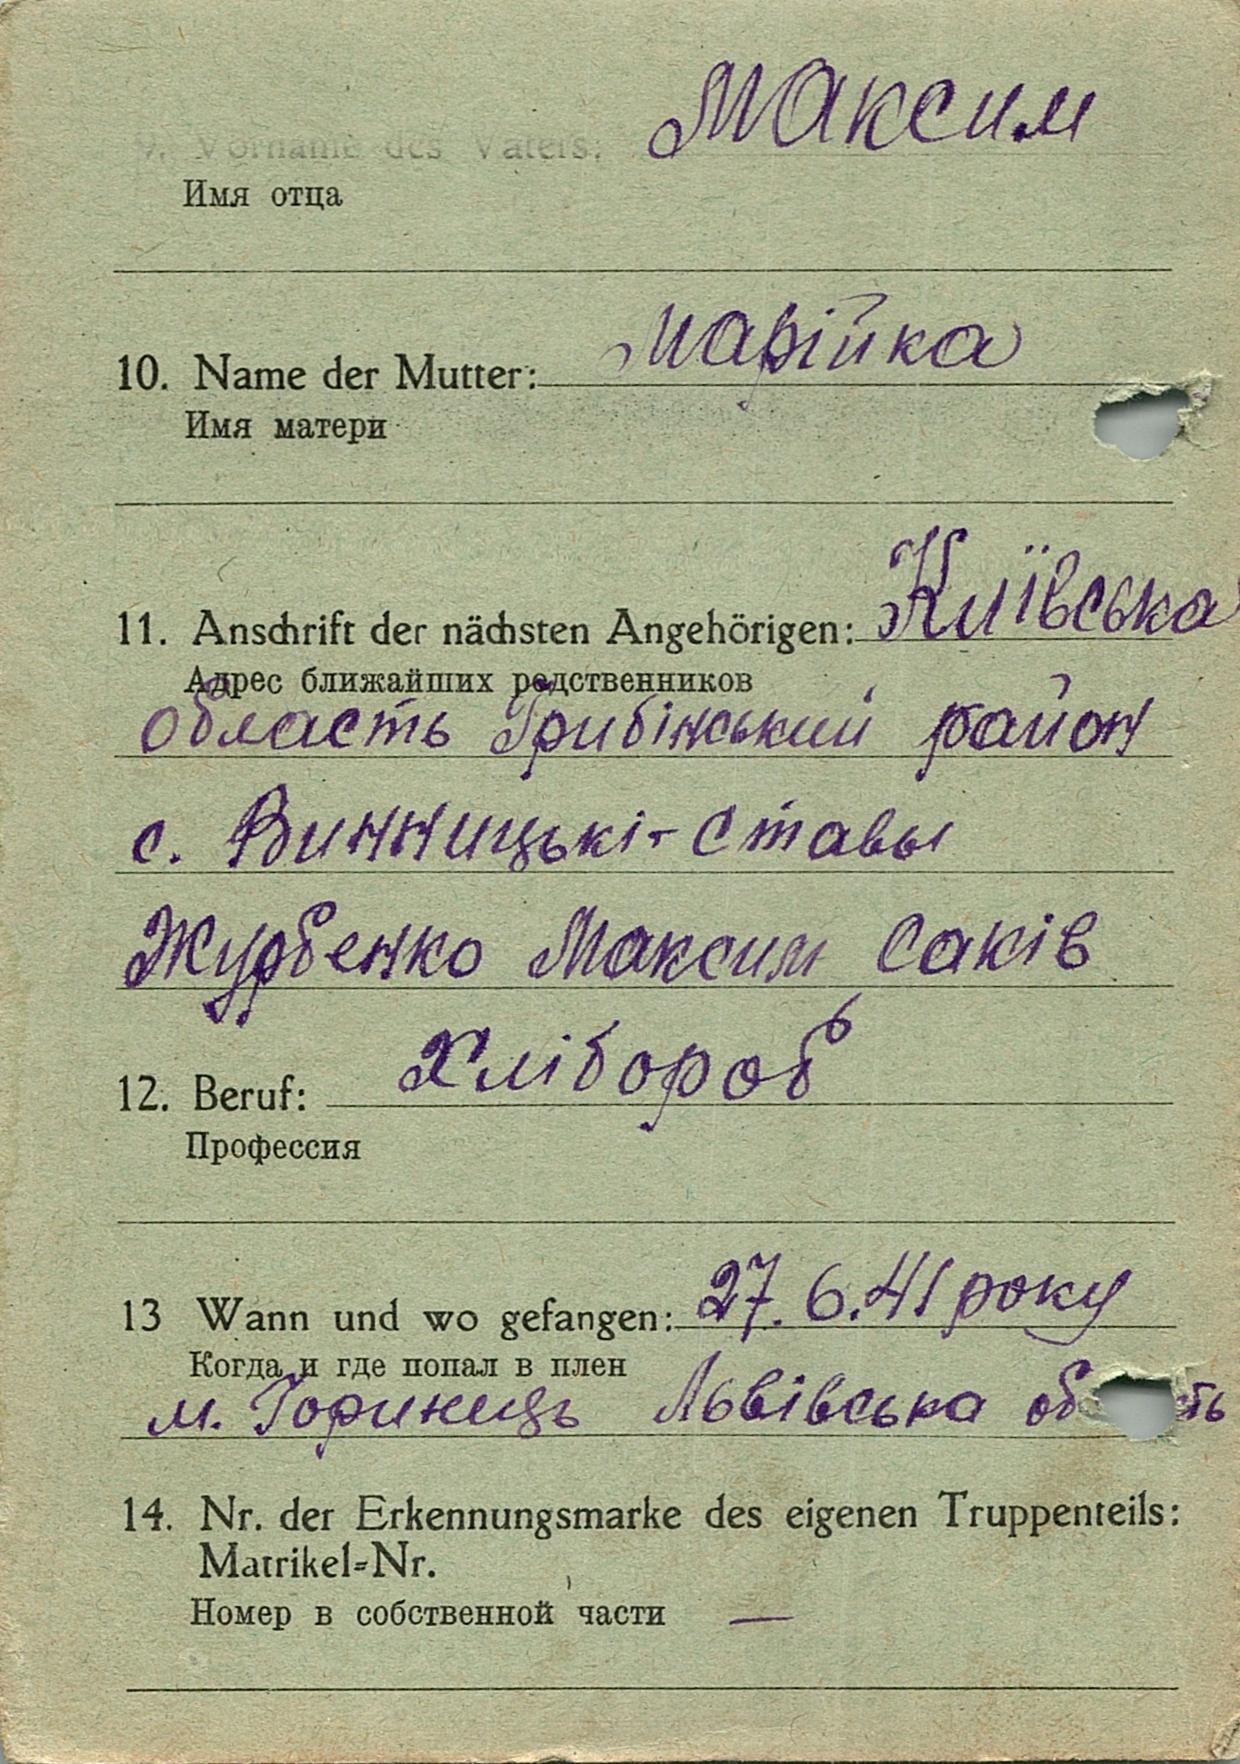 9. Vorname des Vaters: Максим
Имя отца
10. Name der Mutter: Марійка
Имя матери
11. Anschrift der nächsten Angehörigen: Київська
Адрес ближайших редственников
область Грибінський район
с. Винницькі-Ставы
Журбенко Максим Саків
12. Beruf: Хлібороб
Профессия
13 Wann und wo gefangen: 27.6.41 року
Когда и где попал в плен
м. Львівська об ть
14. Nr. der Erkennungsmarke des eigenen Truppenteils:
Matrikel-Nr.
Номер в собственной части —